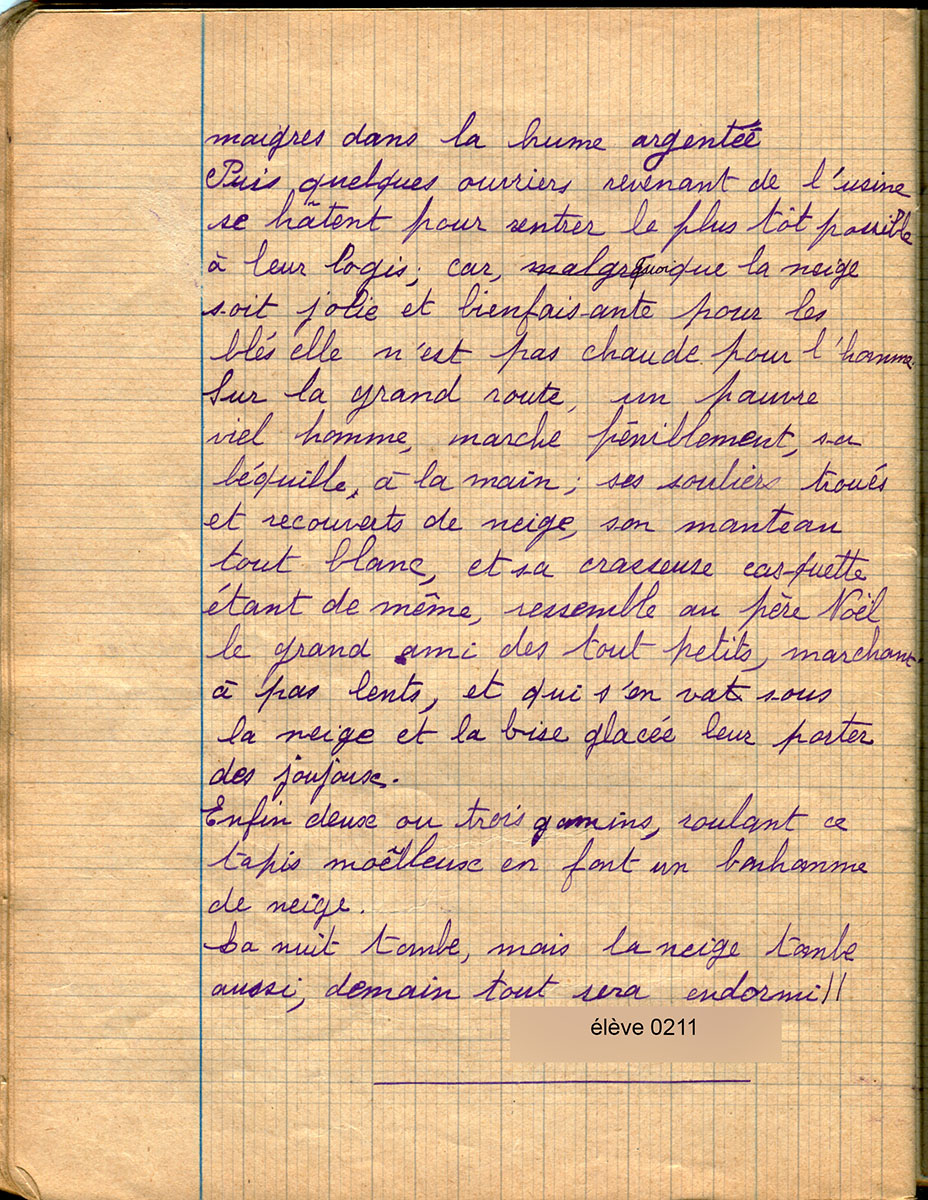 maigres dans la hume argenteé
Puis quelques ouvriers revenant de l'usine
se hâtent pour rentrer le plus tôt possible
à leur logis; car, malgré quoique la neige
soit jolie et bienfaisante pour les
blés elle n'est pas chaude pour l'homme.
Sur la grand route, un pauvre
viel homme, marche péniblement, sa
béquille, à la main; ses souliers troués
et recouverts de neige, son manteau
tout blanc, et sa crasseuse casquette
étant de même, ressemble au père Noël
le grand ami des tout petits, marchant
à pas lents, et qui s'en vat sous
la neige et la bise glacée leur porter
des joujoux.
Enfin deux ou trois gamins, roulant ce
tapis moëlleux en font un bonhomme
de neige.
La nuit tombe, mais la neige tombe
aussi, demain tout sera endormi!!
élève 0211